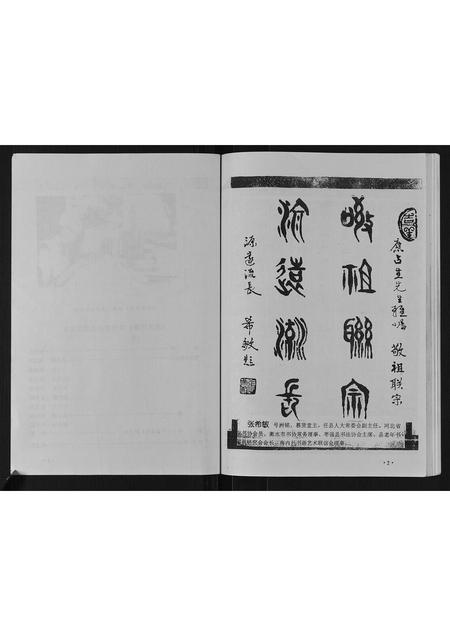 康占生先生雅嘱 敬祖联宗
敬祖聯宗
源遠流長
源遠流長 希敏题
张希敏 号洲铭、慕贤堂主。任县人大常委会副主任。河北省
书法协会员、衡水市书协常务理事、枣强县书法协会主席、县老年书
画研究会会长、海内外书画艺术联谊会理事。
·2·